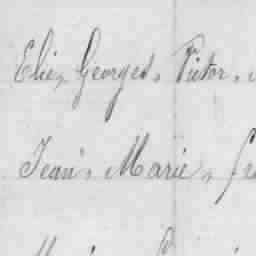 Elie, Georges, Victor,
Jean, Marie,